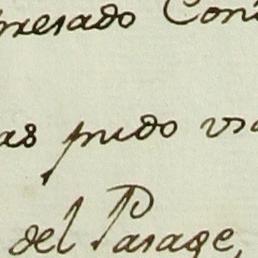 presado Con
as pudo us
del Pasage,